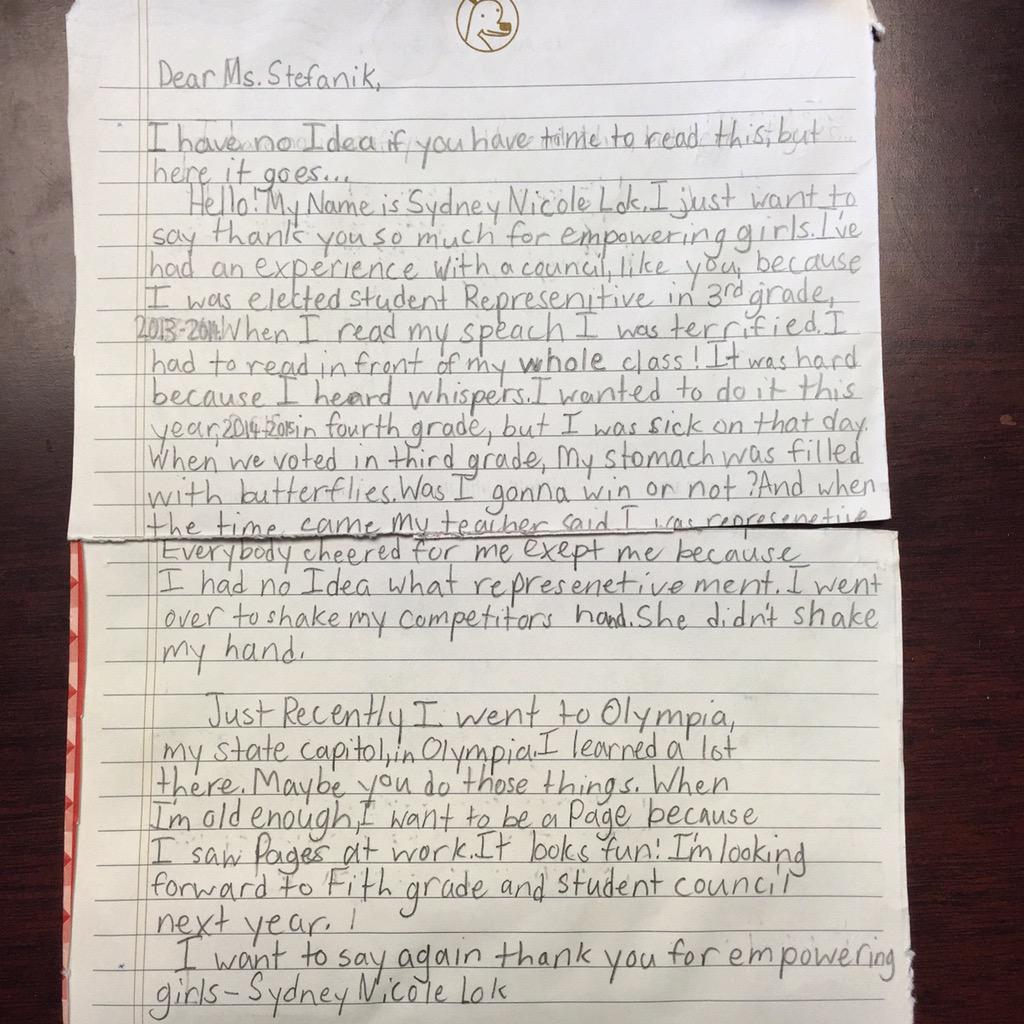 Dear Ms. Stefanik,
I have no Idea if you have time to read this, but
here it goes...
Hello! My Name is Sydney Nicole Lok. I just want to
say thank you so much for empowering girls. I've
had an experience with a council, like you, because
I was elected student Represenitive in 3rd grade,
2013-2014. When I read my speach I was terrified. I
had to read in front of my whole class! It was hard
because I heard whispers. I wanted to do it this
year, 2014-2015 in fourth grade, but I was sick on that day.
When we voted in third grade, My stomach was filled
with butterflies. Was I gonna win or not? And when
the time came my teacher said I was represenetive
Everybody cheered for me exept me because
I had no Idea what represenetive ment. I went
over to shake my competitors hand. She didn't shake
my hand.
Just Recently I went to Olympia,
my state capitol, in Olympia. I learned a lot
there. Maybe you do those things. When
I'm old enough, I want to be a Page because
I saw Pages at work. It looks fun! I'm looking
forward to Fith grade and student council
next year. !
I want to say again thank you for empowering
girls - Sydney Nicole Lok